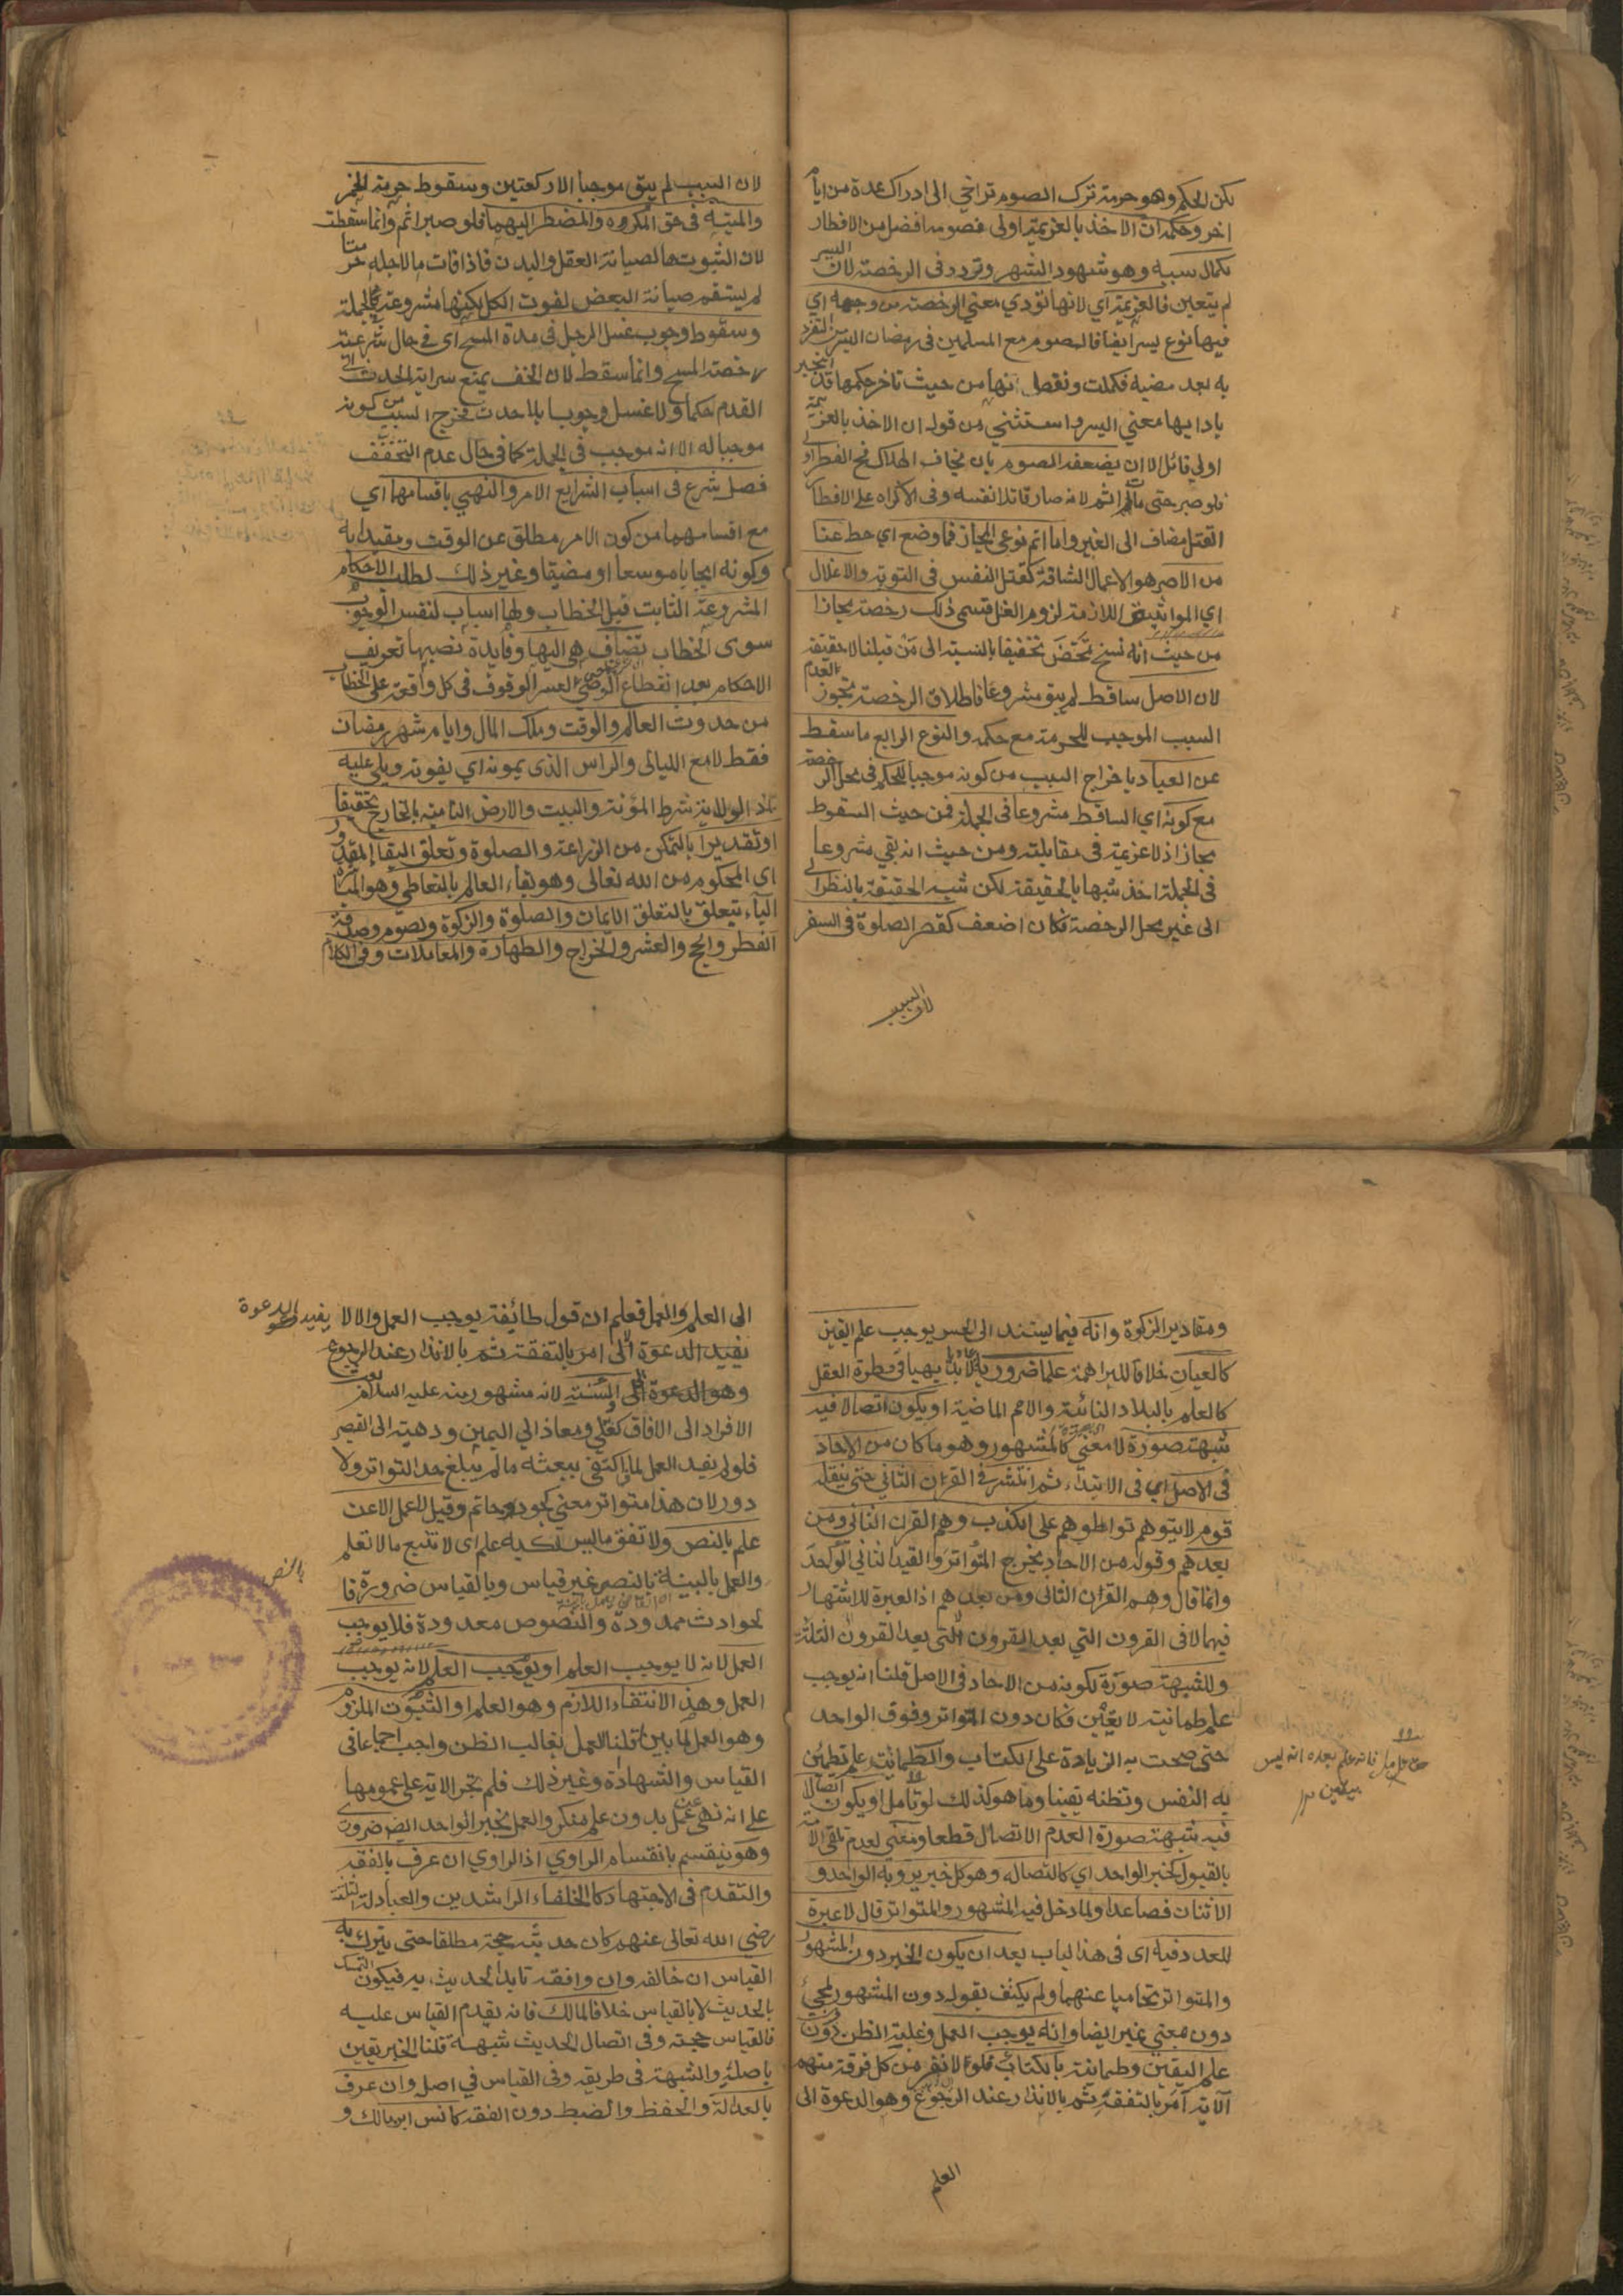 لكن الحكم وهو حرمة ترك الصوم تراخي الى ادراك عدة من ايام
اخر وحكمه ان الاخذ بالعزيمة اولى فصومه افضل من الافطار
لكمال سببه وهو شهود الشهر وتردد في الرخصة لان اليسر
لم يتعين فالعزيمة اي لانها تؤدي معنى الرخصة من وجهه اي
فيها نوع يسر ايضا فالصوم مع المسلمين في رمضان ايسر من التفرد
به بعد مضيه فكملت ونقصا انها من حيث تاخر حكمها قد انجبر
بادايها معنى اليسر واستثنى من قوله ان الاخذ بالعزيمة
اولى قائل الا ان يضعفه الصوم بان يخاف الهلاك فح الفطر اولى
فلو صبر حتى مات اثم لانه صار قاتلا نفسه وفي الاكراه على الافطار
القتل مضاف الى الغير واما اتم نوعي المجاز فما وضع اي حط عنا
من الاصر هو الاعمال الشاقة كقتل النفس في التوبة والاغلال
اي المواثيق اللازمة لزوم الغل فتسمى ذلك رخصة مجازا
من حيث انه نسخ تمحض تخفيفا بالنسبة الى من قبلنا لا حقيقة
لان الاصل ساقط لم يبق مشروعا فاطلاق الرخصة تجوز لعدم
السبب الموجب للحرمة مع حكمه والنوع الرابع ما سقط
عن العباد باخراج السبب من كونه موجبا للحكم في محل الرخصة
مع كونه اي الساقط مشروعا في الجملة فمن حيث السقوط
مجاز اذ لا عزيمة في مقابلته ومن حيث انه بقي مشروعا
في الجملة اخذ شبها بالحقيقة لكن شبه الحقيقة بالنظر الى
الى غير محل الرخصة فكان اضعف كقصر الصلوة في السفر
لان السبب
لان السبب لم يبق موجبا الا ركعتين وسقوط حرمة الخمر
والميتة في حق المكروه والمضطر اليهما فلو صبر اثم وانما سقطت
لان الثبوت ها لصيانة العقل والبدن فاذا فات ما لاجله حرمتا
لم يستقم صيانة البعض لفوت الكل لكنها مشروعة في الجملة
وسقوط وجوب غسل الرجل في مدة المسح اي في حال شرعية
رخصة المسح وانما سقط لان الخف يمنع سراية الحدث الى
القدم حكما ولا غسل وجوبا بلا حدث فخرج السبب من كونه
موجبا له الا انه موجب في الجملة كما في حال عدم التخفف
فصل شرع في اسباب الشرايع الامر والنهي باقسامها اي
مع اقسامهما من كون الامر مطلق عن الوقت ومقيدا به
وكونه ايجابا موسعا او مضيقا وغير ذلك لطلب الاحكام
المشروعة الثابت قبل الخطاب ولها اسباب لنفس الوجوب
سوى الخطاب تضاف هي اليها وفايدة نصبها تعريف
الاحكام بعد انقطاع الوحي العسر الوقوف في كل واقعة على الخطاب
من حدوث العالم والوقت وملك المال وايام شهر رمضان
فقط لا مع الليالي والراس الذي يمونه اي يقوته ويلي عليه
اذ الولاية شرط المؤنة والبيت والارض النامية بالخارج تحقيقا
او تقديرا بالتمكن من الزراعة والصلوة وتعلق البقا المقدور
اي المحكوم من الله تعالى وهو بقاء العالم بالتعاطي وهو المباشرة
الباء يتعلق بالتعلق الايمان والصلوة والزكوة وصوم وصدقة
الفطر والحج والعشر والخراج والطهارة والمعاملات وفي الكلام
ومقادير الزكوة وانه فيما يستند الى الحس يوجب علم اليقين
كالعيان خلافا للبراهمة علما ضروريا
كالعلم بالبلاد النائية والامم الماضية او يكون اتصالا فيه
شبهة صورة لا معنى كالمشهور وهو ما كان من الاحاد
في الاصل اي في الابتداء ثم انتشر في القرن الثاني حتى ينقله
قوم لا يتوهم تواطوهم على الكذب وهم القرن الثاني ومن
بعدهم وقوله من الاحاد يخرج المتواتر والقيد الثاني الواحد
وانما قال وهم القرن الثاني ومن بعدهم اذ العبرة للاشتهار
فيها لا في القرون التي بعد القرون التي بعد القرون الثلثة
وللشبهة صورة لكونه من الاحاد في الاصل قلنا انه يوجب
علم طمانية لا يقين فكان دون المتواتر وفوق الواحد
حتى صحت به الزيادة على الكتاب والطمانية علم تطمئن
به النفس وتظنه يقينا وما هو كذلك لو تامل او يكون اتصالا
فيه شبهة صورة لعدم الاتصال قطعا ومعنى لعدم تلقي الامة
بالقبول كخبر الواحد اي كاتصاله وهو كل خبر يرويه الواحد و
الاثنان فصاعدا ولما دخل فيه المشهور والمتواتر قال لا عبرة
للعدد فيه اي في هذا لباب بعد ان يكون الخبر دون المشهور
والمتواتر تحاميا عنهما ولم يكتف بقوله دون المشهور لمجئ
دون بمعنى غير ايضا وانه يوجب العمل وغلبة الظن دون
علم اليقين وطمانية بالكتاب فلولا نفر من كل فرقة منهم
الاية امر بالتفقه ثم بالانذار عند الرجوع وهو الدعوة الى
العلم
حق تامل فانه علم بعده انه ليس
بيقين
الى العلم والعمل فعلم ان قول طائفة يوجب العمل والا لا يفيد الدعوة
يفيد الدعوة الى امر بالتفقه ثم بالانذار عند الرجوع
وهو الدعوة الى والسنة لانه مشهور بعث عليه السلام
الافراد الى الافاق كعلي ومعاذ الي اليمن ودحية الى القصر
فلو لم يفيد العمل لما اكتفى ببعثه ما لم يبلغ حد التواتر ولا
دور لان هذا متواتر معنى كجود حاتم وقيل لا عمل الا عن
علم بالنص ولا تقف ما ليس لك به علم اى لا تتبع ما لا تعلم
والعمل بالبينة بالنص غير قياس وبالقياس ضرورة فا
بالنص
لحوادث ممدودة والنصوص معدودة فلا يوجب
العمل لانه لا يوجب العلم او يوجب العلم لانه يوجب
العمل وهذا لانتفاء اللازم وهو العلم او الثبوت الملزوم
وهو العمل لما بين قلنا العمل بغالب الظن واجب اجماعا في
القياس والشهادة وغير ذلك فلم تجر الاية على عمومها
على انه نهى عن عمل بدون علم منكر والعمل بخبر الواحد ليس ضروري
وهو ينقسم بانقسام الراوي اذ الراوي ان عرف بالفقه
والتقدم في الاجتهاد كالخلفاء الراشدين والعبادلة الثلثة
رضي الله تعالى عنهم كان حديثه حجة مطلقا حتى يترك به
القياس ان خالفه وان وافقه تايد الحديث به فيكون التمسك
بالحديث لا بالقياس خلافا لمالك فانه يقدم القياس عليه
فالقياس حجته وفي اتصال الحديث شبهة قلنا الخبر يقين
باصله والشبهة في طريقه وفي القياس في اصل وان عرف
بالعدالة والحفظ والضبط دون الفقه كانس ابن مالك و